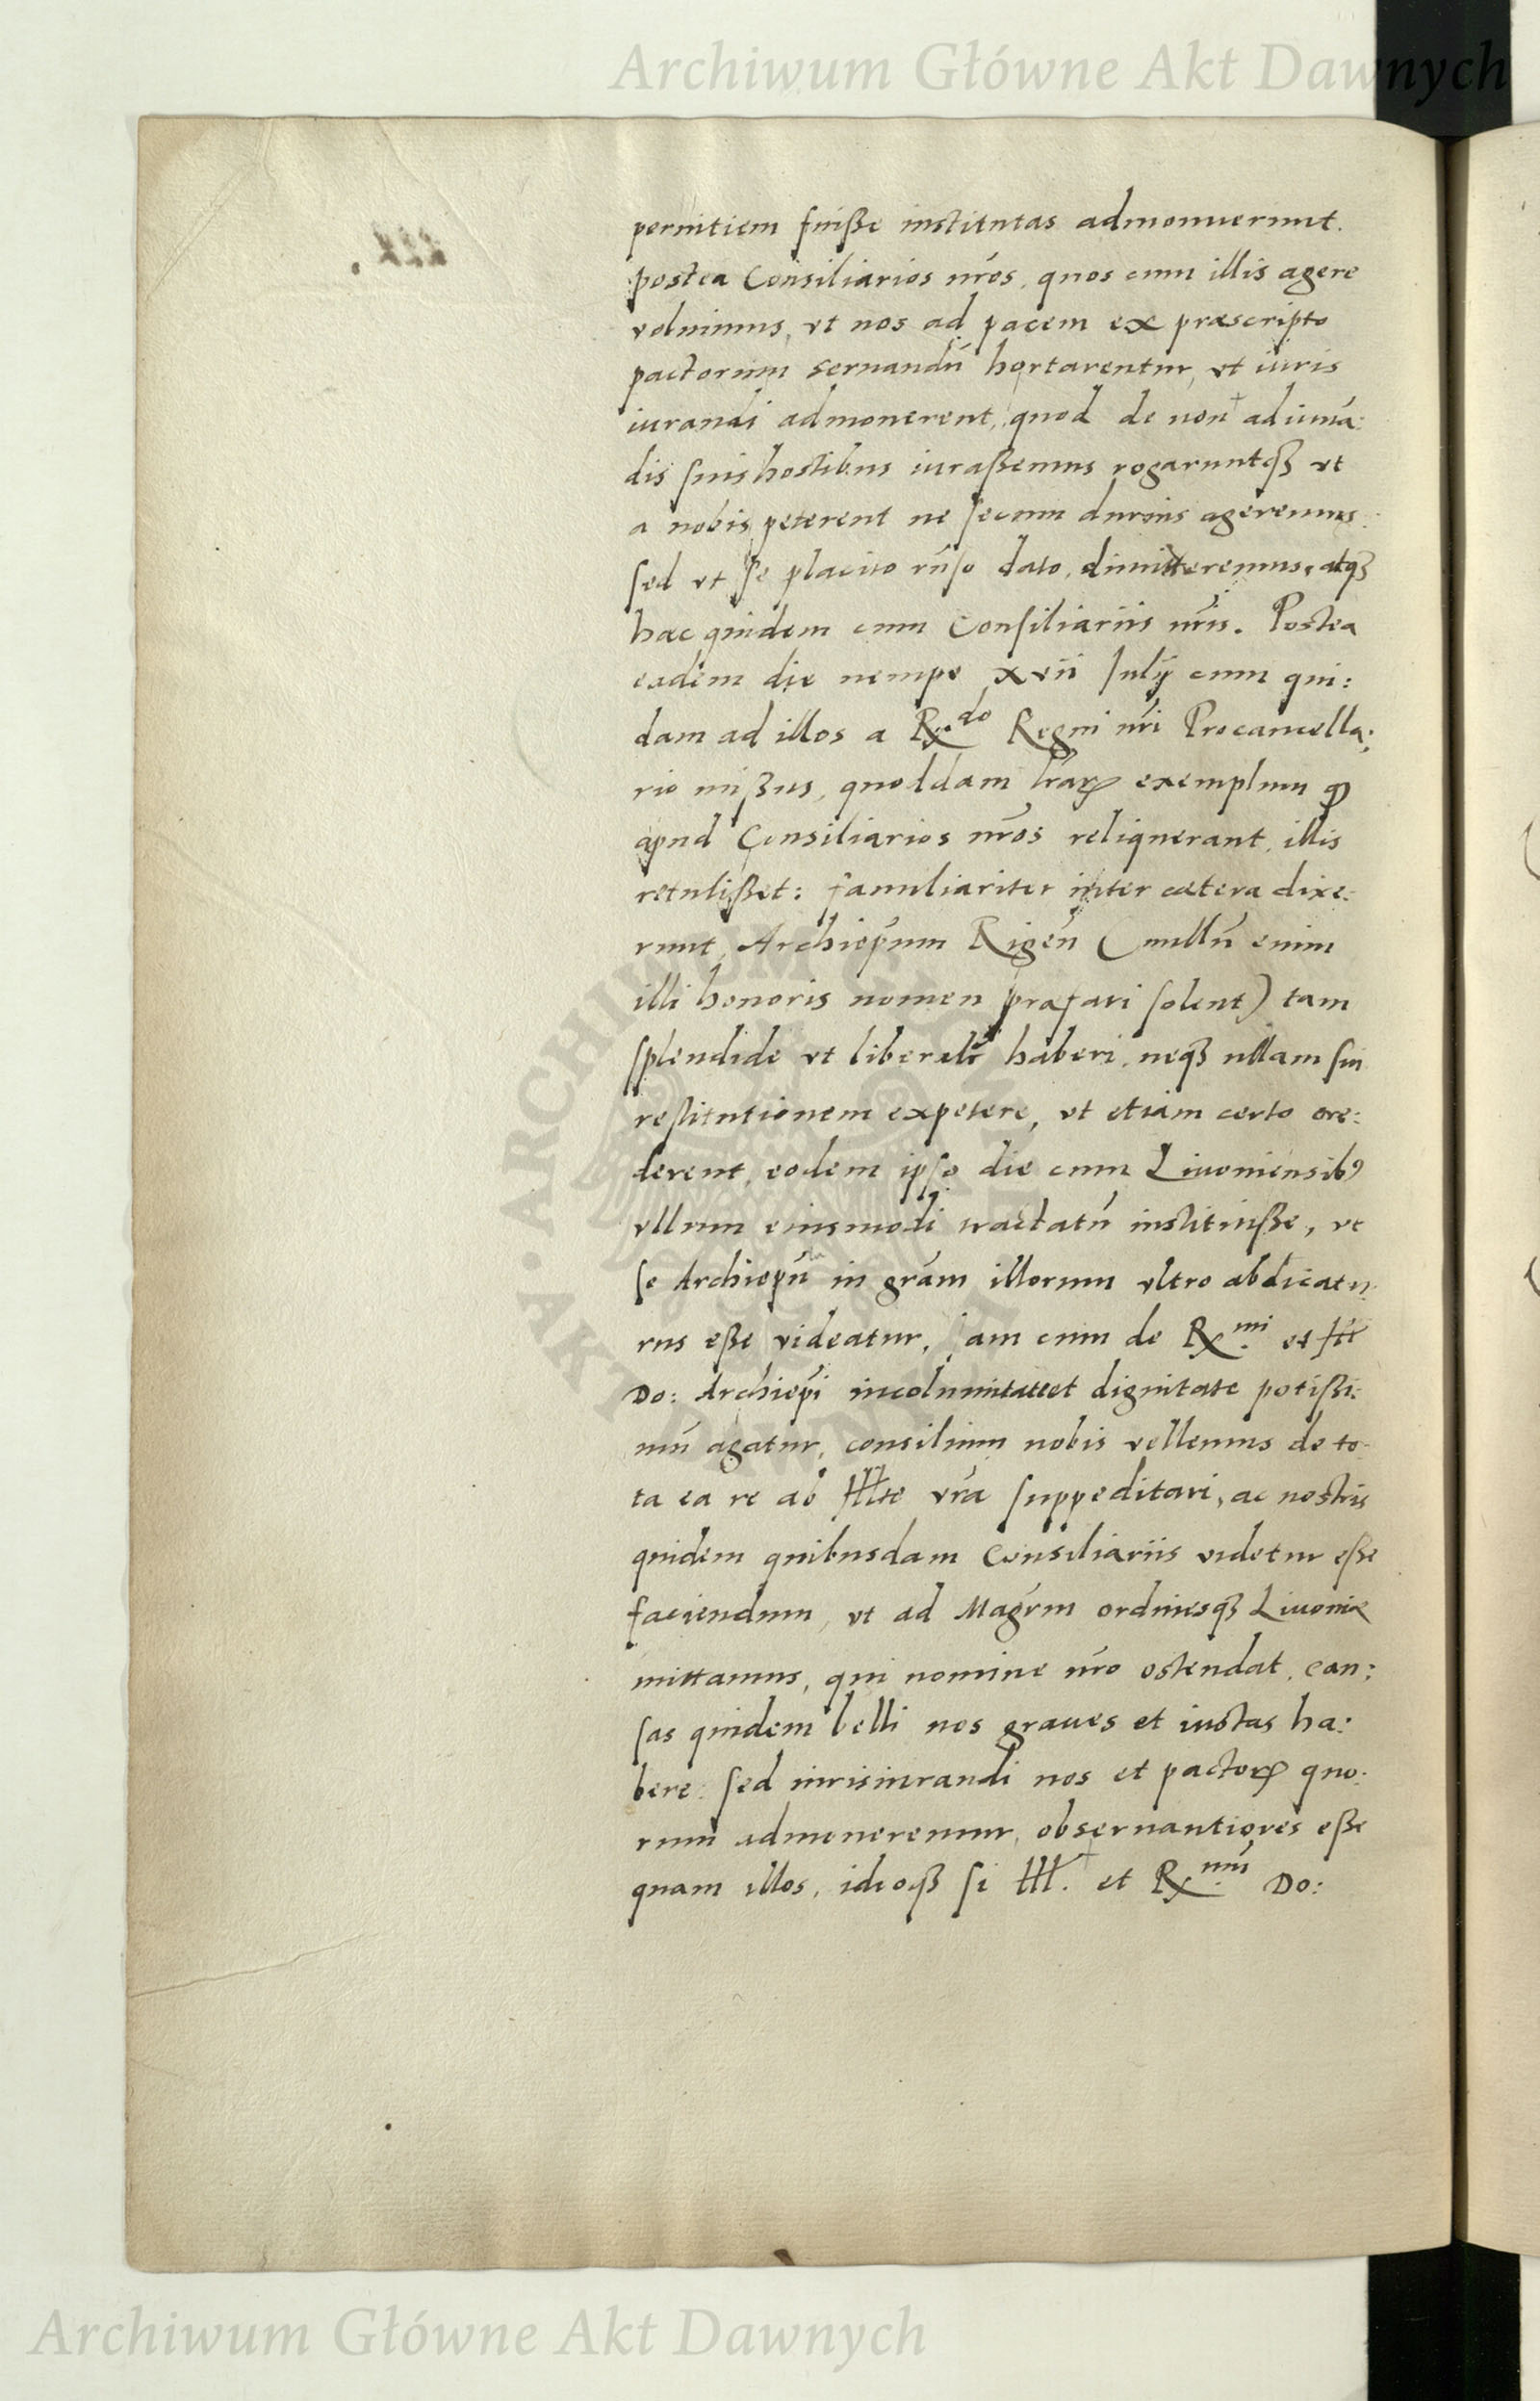 Archiwum Główne Akt Dawnych
pernitiem fuiße institutas admonuerunt.
postea Consiliarios nr̃os, quos cum illis agere
voluimus, vt nos ad pacem ex præscripto
pactorum seruandũ hortarentur, vt iuris
iurandi admonerent, quod de non adiuuã:
dis suis hostibus iuraßemus rogaruntqꝫ vt
a nobis peterent ne secum durius ageremus:
sed vt se placito rñso dato, dimitteremus, atqꝫ
hæc quidem cum Consiliariis nr̃is. Postea
eadem die nempe xvii Iulij cum qui:
dam ad illos a Rx.do Regni nr̃i Procancella:
rio mißus, quoddam lr̃arꝝ exemplum qđ
apud Consiliarios nr̃os reliquerant, illis
retulißet: familiariter inter cætera dixe:
runt, Archiep̃um Rigeñ (nullũ enim
illi honoris nomen præfari solent) tam
splendide vt liberalr̃ haberi, neqꝫ ullam sui
restitutionem expetere, vt etiam certo cre:
derent, eodem ipso die cum Liuoniensibꝰ
vllum eiusmodi tractatũ instituiße, vt
se Archiep̃ũ in gr̃am illorum vltro abdicatu:
rus eße videatur, iam cum de Rx.mi et Ill
Do: Archiep̃i incolumitate et dignitate potißi:
mũ agatur, consilium nobis vellemus de to:
ta ea re ab Illte vr̃a suppeditari, ac nostris
quidem quibusdam Consiliariis videtur eße
faciendum, vt ad Magr̃m ordinesqꝫ Liuoniæ
mittamus, qui nomine nr̃o ostendat, cau:
sas quidem belli nos graues et iustas ha:
bere: sed iurisiurandi nos et pactorꝝ quo:
rum admoneremur, obseruantiores eße
quam illos, ideoqꝫ si Ill. et Rx.mus Do:
ARCHIWUM GŁÓWNE · AKT DAWNYCH ·
Archiwum Główne Akt Dawnych